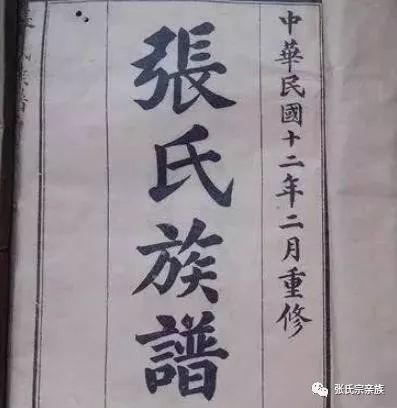 中華民國十二年二月重修
張氏族譜
张氏宗亲族